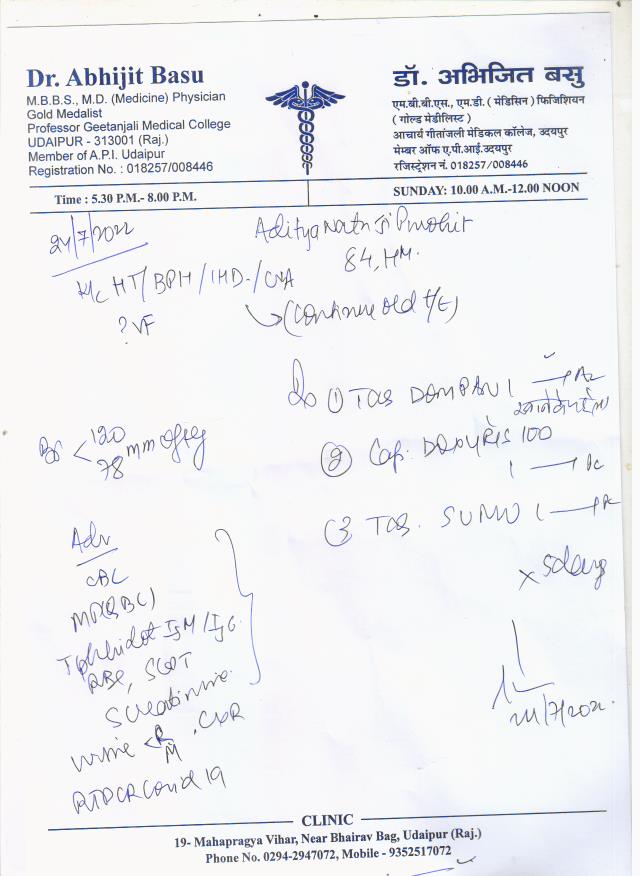 Dr. Abhijit Basu
M.B.B.S., M.D. (Medicine) Physician
Gold Medalist
Professor Geetanjali Medical College
UDAIPUR - 313001 (Raj.)
Member of A.P.I. Udaipur
Registration No. : 018257/008446
डॉ. अभिजित बसु
एम.बी.बी.एस., एम.डी. ( मेडिसिन ) फिजिशियन
( गोल्ड मेडीलिस्ट )
आचार्य गीतांजली मेडिकल कॉलेज, उदयपुर
मेम्बर ऑफ ए.पी.आई.उदयपुर
रजिस्ट्रेशन नं. 018257/008446
Time : 5.30 P.M.- 8.00 P.M.
SUNDAY: 10.00 A.M.-12.00 NOON
24/7/2022
Aditya Nath Ji Purohit
84,
K/c HT/BPH/IHD/CVA
(Continue old t/t)
? VF
① Tab DOMPAN 1
120
78 mm of Hg
② Cap. DOXYRIS 100
1
③ Tab. SUMO 1
x 5 days
Adv
CBC
MP(QBC)
Typhidot IgM/IgG
RBS, SGOT
S creatinine
urine < R M, CXR
RTPCR Covid 19
24/7/2022
CLINIC
19- Mahapragya Vihar, Near Bhairav Bag, Udaipur (Raj.)
Phone No. 0294-2947072, Mobile - 9352517072